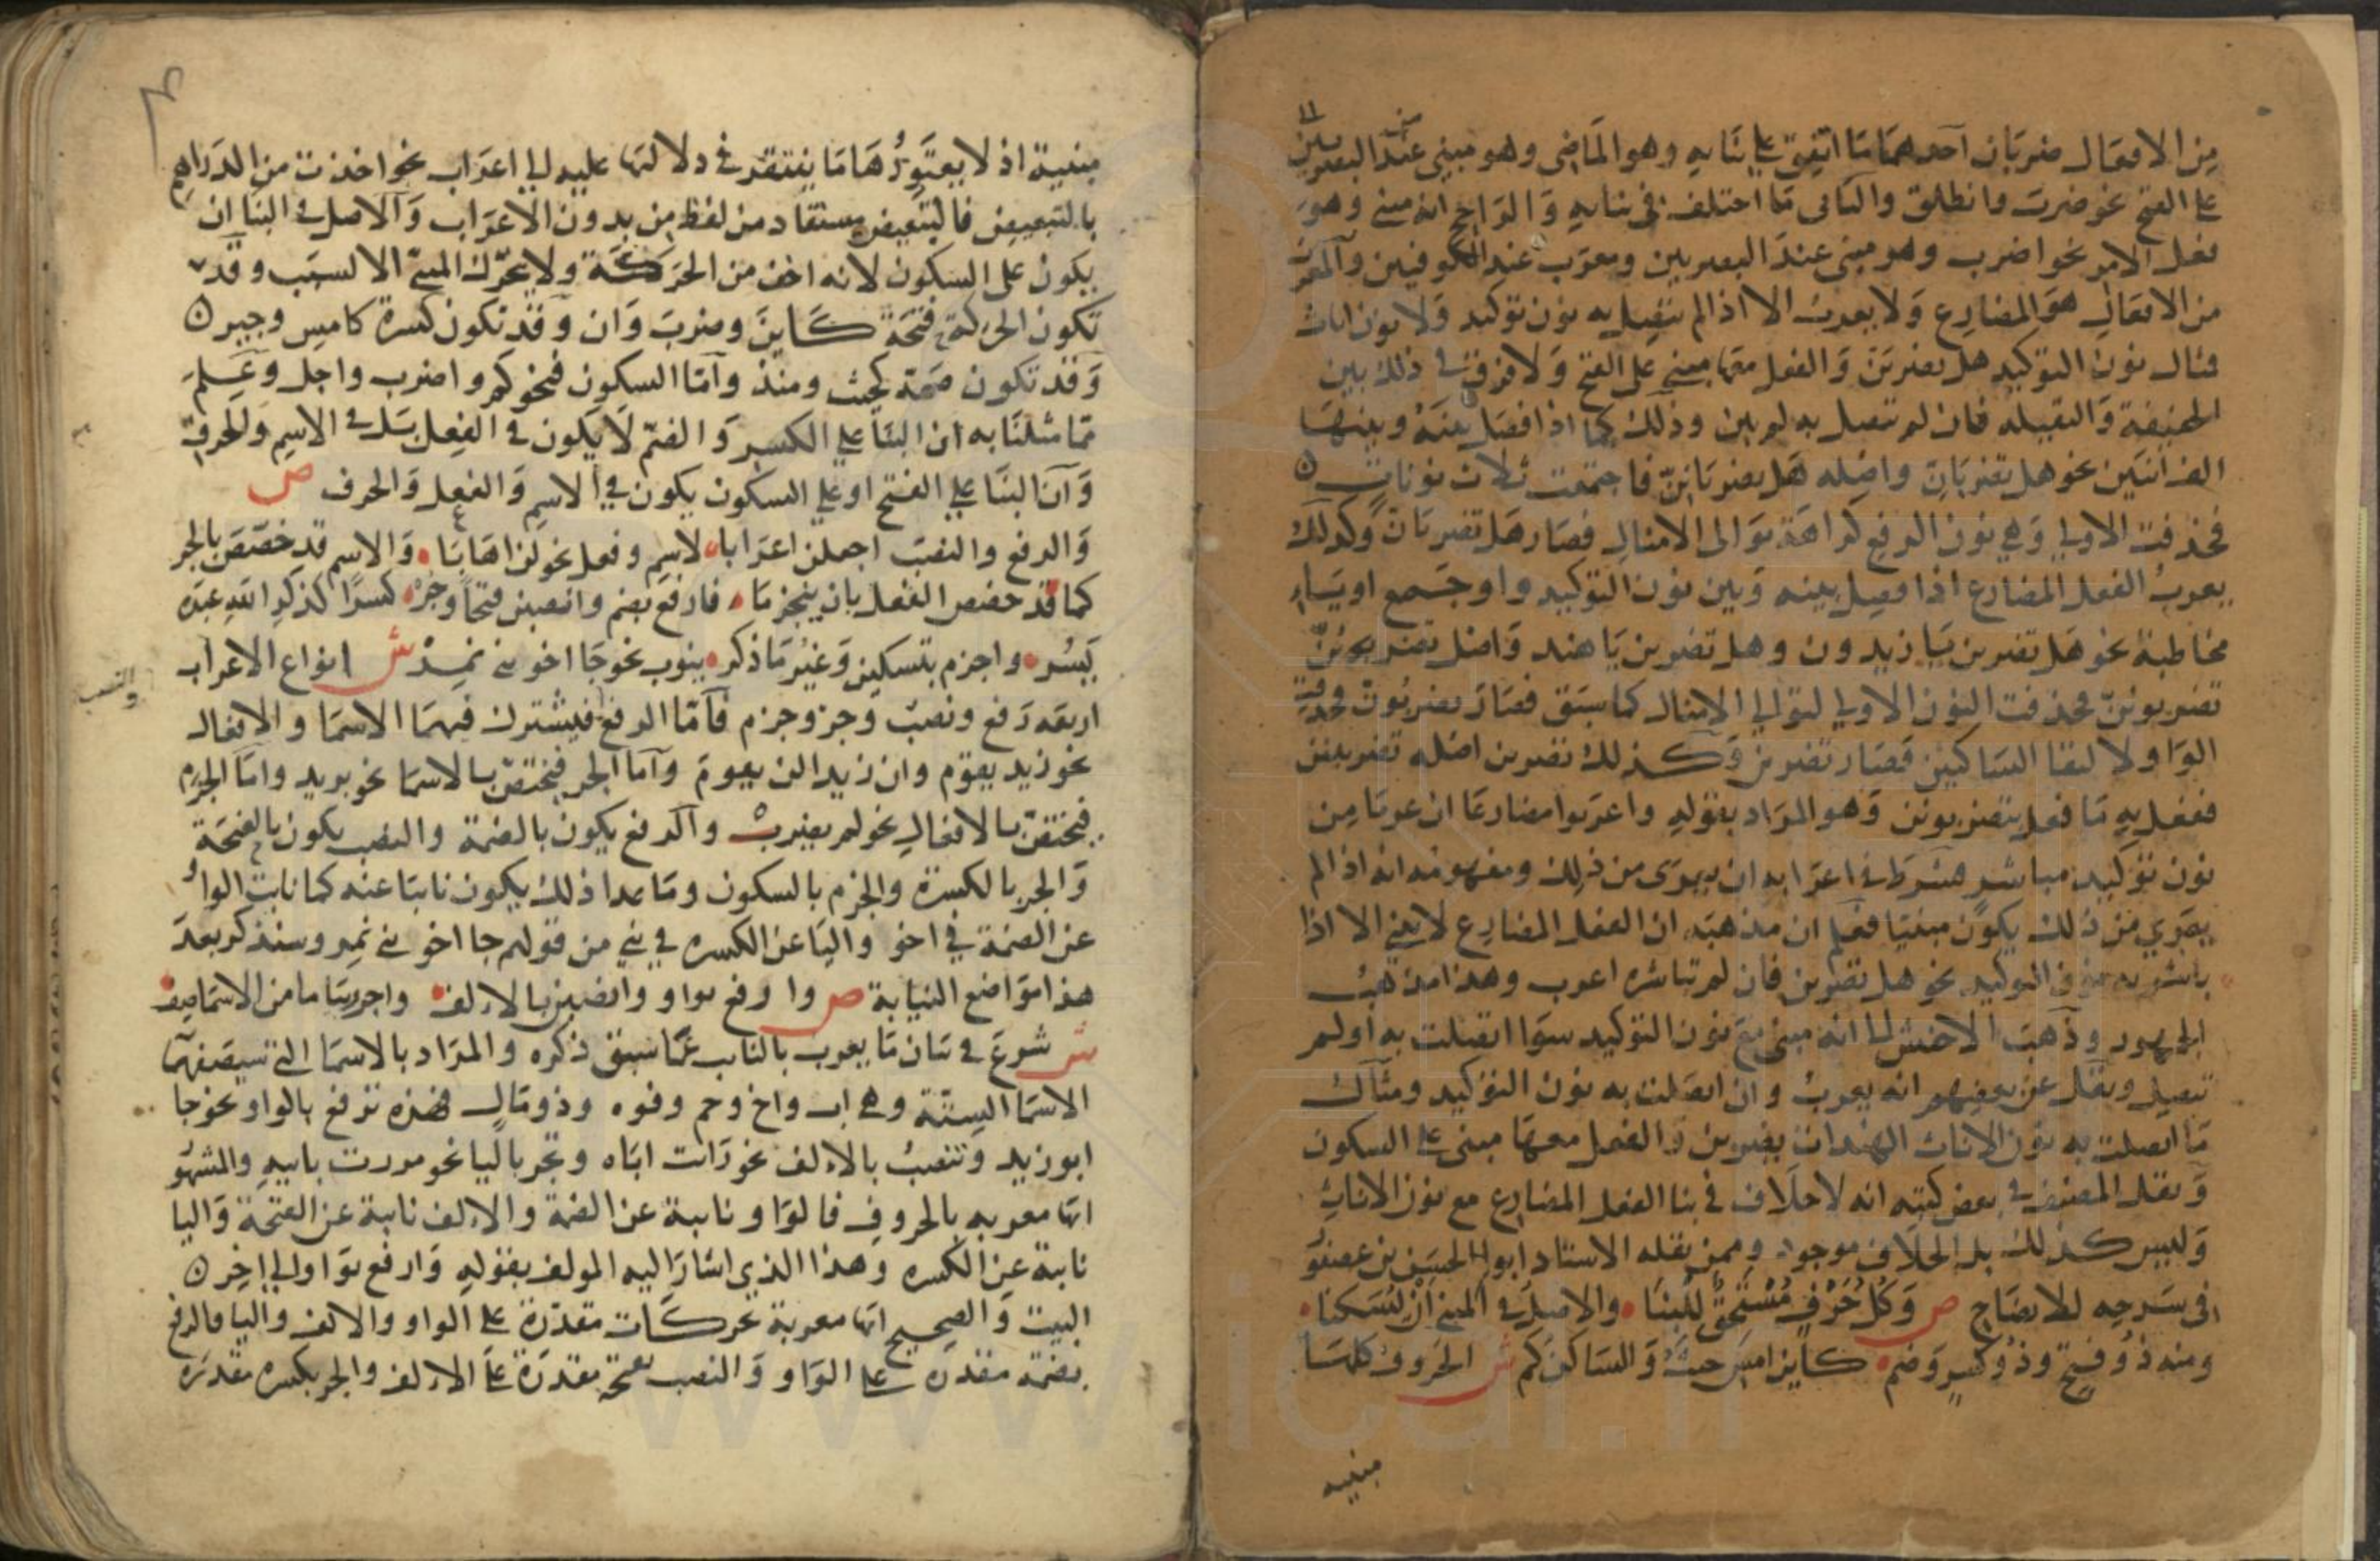 من الافعال ضربان احدهما ما اتفق على بنايه وهو الماضى وهو مبنى عند البصريين
على الفتح نحو ضرب وانطلق والثانى ما اختلف فى بنايه والراجح انه مبنى وهو
فعل الامر نحو اضرب وهو مبنى عند البصريين ومعرب عند الكوفيين والمعرب
من الافعال هو المضارع ولا يعرب الا اذا لم تتصل به نون توكيد ولا نون اناث
مثال نون التوكيد هل تضربن والفعل معها مبني على الفتح ولا فرق في ذلك بين
الخفيفة والثقيله فان لم تتصل به لم يبن وذلك كما اذا فصل بينه وبينها
الف اثنين نحو هل تضربان واصله هل تضربانن فاجتمعت ثلاث نونات
فحذفت الاولي وهي نون الرفع كراهة توالى الامثال فصار هل تضربان وكذلك
يعرب الفعل المضارع اذا فصل بينه وبين نون التوكيد واو جمع او ياء
مخاطبة نحو هل تضربن يا زيدون وهل تضربن يا هند واصل تضربن
تضربونن فحذفت النون الاولي لتوالي الامثال كما سبق فصار تضربون فحذفت
الواو لالتقا الساكنين فصار تضربن وكذلك تضربن اصله تضربينن
ففعل به ما فعل بتضربونن وهو المراد بقوله واعربوا مضارعا ان عريا من
نون توكيد مباشر فشرط في اعرابه ان يعرى من ذلك ومفهومه انه اذا لم
يعري من ذلك يكون مبنيا فعلم ان مذهبه ان الفعل المضارع لا يبني الا اذا
باشرته نون التوكيد نحو هل تضربن فان لم تباشره اعرب وهذا مذهب
الجمهور وذهب الاخفش الي انه مبنى مع نون التوكيد سوا اتصلت به او لم
تتصل ونقل عن بعضهم انه يعرب وان اتصلت به نون التوكيد ومثال
ما اتصلت به نون الاناث الهندات يضربن والفعل معها مبنى على السكون
ونقل المصنف في بعض كتبه انه لا خلاف في بنا الفعل المضارع مع نون الاناث
وليس كذلك بل الخلاف موجود وممن نقله الاستاد ابو الحسن بن عصفور
فى شرحه للايضاح ص وكل حرف مستحق للبنا والاصل في المبني ان يسكنا
ومنه ذو فتح وذو كسر وضم كاين امس حيث والساكن كم ش الحروف كلها
مبنيه
مبنية اذ لا يعتورها ما يفتقر في دلالتها عليه الي اعراب نحو اخذت من الدراهم
بالتبعيض فالتبعيض مستفاد من لفظ من بدون الاعراب والاصل في البنا ان
يكون على السكون لانه اخف من الحركة ولا يحرك المبني الا لسبب وقد
تكون الحركة فتحة كاين وضرب وان وقد تكون كسرة كامس وجير
وقد تكون ضمة كحيث ومنذ واما السكون فنحو كم واضرب واجل وعلم
مما مثلنا به ان البنا علي الكسر والضم لا يكون في الفعل بل في الاسم والحرف
وان البنا علي الفتح او علي السكون يكون في الاسم والفعل والحرف ص
والرفع والنصب اجعلن اعرابا لاسم وفعل نحو لن اهابا والاسم قد خصص بالجر
كما قد خصص الفعل بان ينجزما فارفع بضم وانصبن فتحا وجر كسرا كذكر الله عبده
يسر واجزم بتسكين وغير ما ذكر ينوب نحو جا اخو بني نمر ش انواع الاعراب
اربعه رفع ونصب وجر وجزم فاما الرفع فيشترك فيهما الاسما والافعال
والنصب
نحو زيد يقوم وان زيدا لن يقوم واما الجر فيختص بالاسما نحو بزيد واما الجزم
فيختص بالافعال نحو لم يضرب والرفع يكون بالضمة والنصب يكون بالفتحة
والجر بالكسرة والجزم بالسكون وما عدا ذلك يكون نايبا عنه كما نابت الواو
عن الضمة في اخو واليا عن الكسره في بني من قولهم جا اخو بني نمر وسنذكر بعد
هذا مواضع النيابة ص وارفع بواو وانصبن بالالف واجرر بيا ما من الاسما اصف
ش شرع في بيان ما يعرب بالنايب عما سبق ذكره والمراد بالاسما التي سيصفها
الاسما الستة وهي اب واخ وحم وفوه وذو مال فهذه ترفع بالواو نحو جا
ابو زيد وتنصب بالالف نحو رايت اباه وتجر باليا نحو مررت بابيه والمشهور
انها معربه بالحروف فالواو نايبة عن الضمة والالف نايبة عن الفتحة واليا
نايبة عن الكسره وهذا الذي اشار اليه المولف بقوله وارفع بواو الي اخر
البيت والصحيح انها معربة بحركات مقدرة على الواو والالف واليا فالرفع
بضمة مقدره على الواو والنصب بفتحة مقدرة على الالف والجر بكسره مقدره